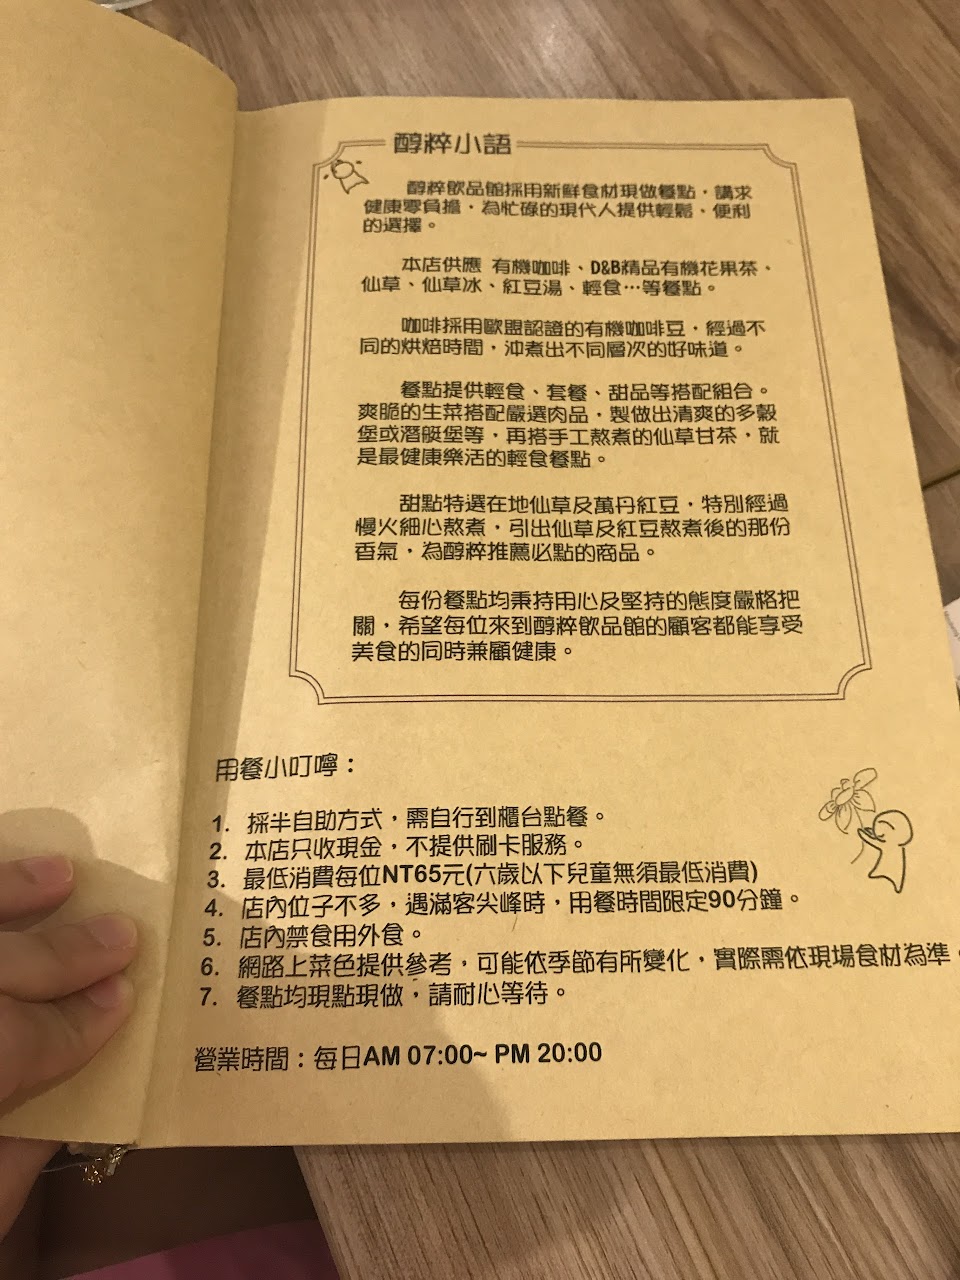 醇粹小語
醇粹飲品館採用新鮮食材現做餐點，講求
健康零負擔，為忙碌的現代人提供輕鬆、便利
的選擇。
本店供應 有機咖啡、D&B精品有機花果茶、
仙草、仙草冰、紅豆湯、輕食…等餐點。
咖啡採用歐盟認證的有機咖啡豆，經過不
同的烘焙時間，沖煮出不同層次的好味道。
餐點提供輕食、套餐、甜品等搭配組合。
爽脆的生菜搭配嚴選肉品，製做出清爽的多穀
堡或潛艇堡等，再搭手工熬煮的仙草甘茶，就
是最健康樂活的輕食餐點。
甜點特選在地仙草及萬丹紅豆，特別經過
慢火細心熬煮，引出仙草及紅豆熬煮後的那份
香氣，為醇粹推薦必點的商品。
每份餐點均秉持用心及堅持的態度嚴格把
關，希望每位來到醇粹飲品館的顧客都能享受
美食的同時兼顧健康。
用餐小叮嚀：
1. 採半自助方式，需自行到櫃台點餐。
2. 本店只收現金，不提供刷卡服務。
3. 最低消費每位NT65元(六歲以下兒童無須最低消費)
4. 店內位子不多，遇滿客尖峰時，用餐時間限定90分鐘。
5. 店內禁食用外食。
6. 網路上菜色提供參考，可能依季節有所變化，實際需依現場食材為準。
7. 餐點均現點現做，請耐心等待。
營業時間：每日AM 07:00~ PM 20:00